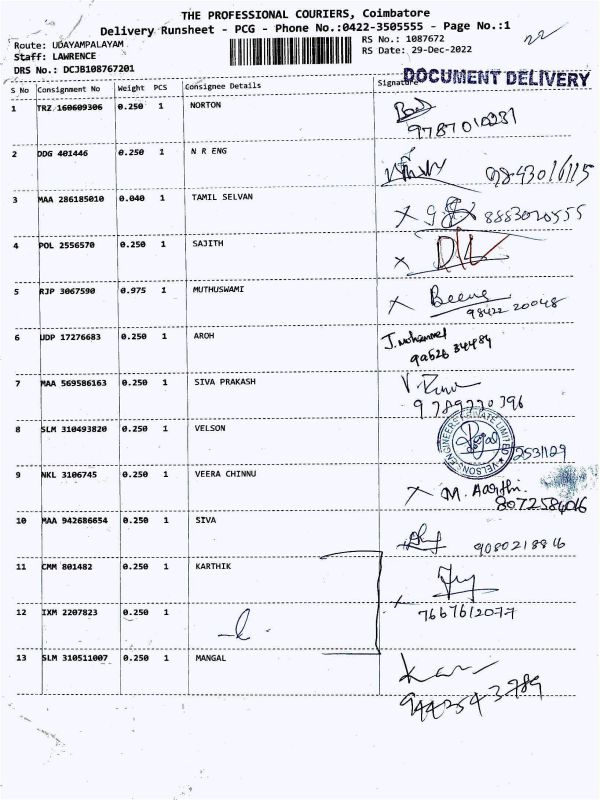 THE PROFESSIONAL COURIERS, Coimbatore
Delivery Runsheet - PCG - Phone No.:0422-3505555 - Page No.:1
22
Route: UDAYAMPALAYAM
RS No.: 1087672
Staff: LAWRENCE
RS Date: 29-Dec-2022
DRS No.: DCJB108767201
DOCUMENT DELIVERY
S No Consignment No Weight PCS Consignee Details Signature
1 TRZ 160609306 0.250 1 NORTON
9787010231
2 DDG 401446 0.250 1 N R ENG
9843016115
3 MAA 286185010 0.040 1 TAMIL SELVAN
8883020555
4 POL 2556570 0.250 1 SAJITH
5 RJP 3067590 0.975 1 MUTHUSWAMI
98422 20048
6 UDP 17276683 0.250 1 AROH
J. Mohammed
7 MAA 569586163 0.250 1 SIVA PRAKASH
9789770796
8 SLM 310493820 0.250 1 VELSON
VELSONS ENGINEERS PRIVATE LIMITED
2531129
9 NKL 3106745 0.250 1 VEERA CHINNU
M. Aarthi.
8072584016
10 MAA 942686654 0.250 1 SIVA
9080218816
11 CMM 801482 0.250 1 KARTHIK
12 IXM 2207823 0.250 1
7667612077
13 SLM 310511007 0.250 1 MANGAL
9442543789